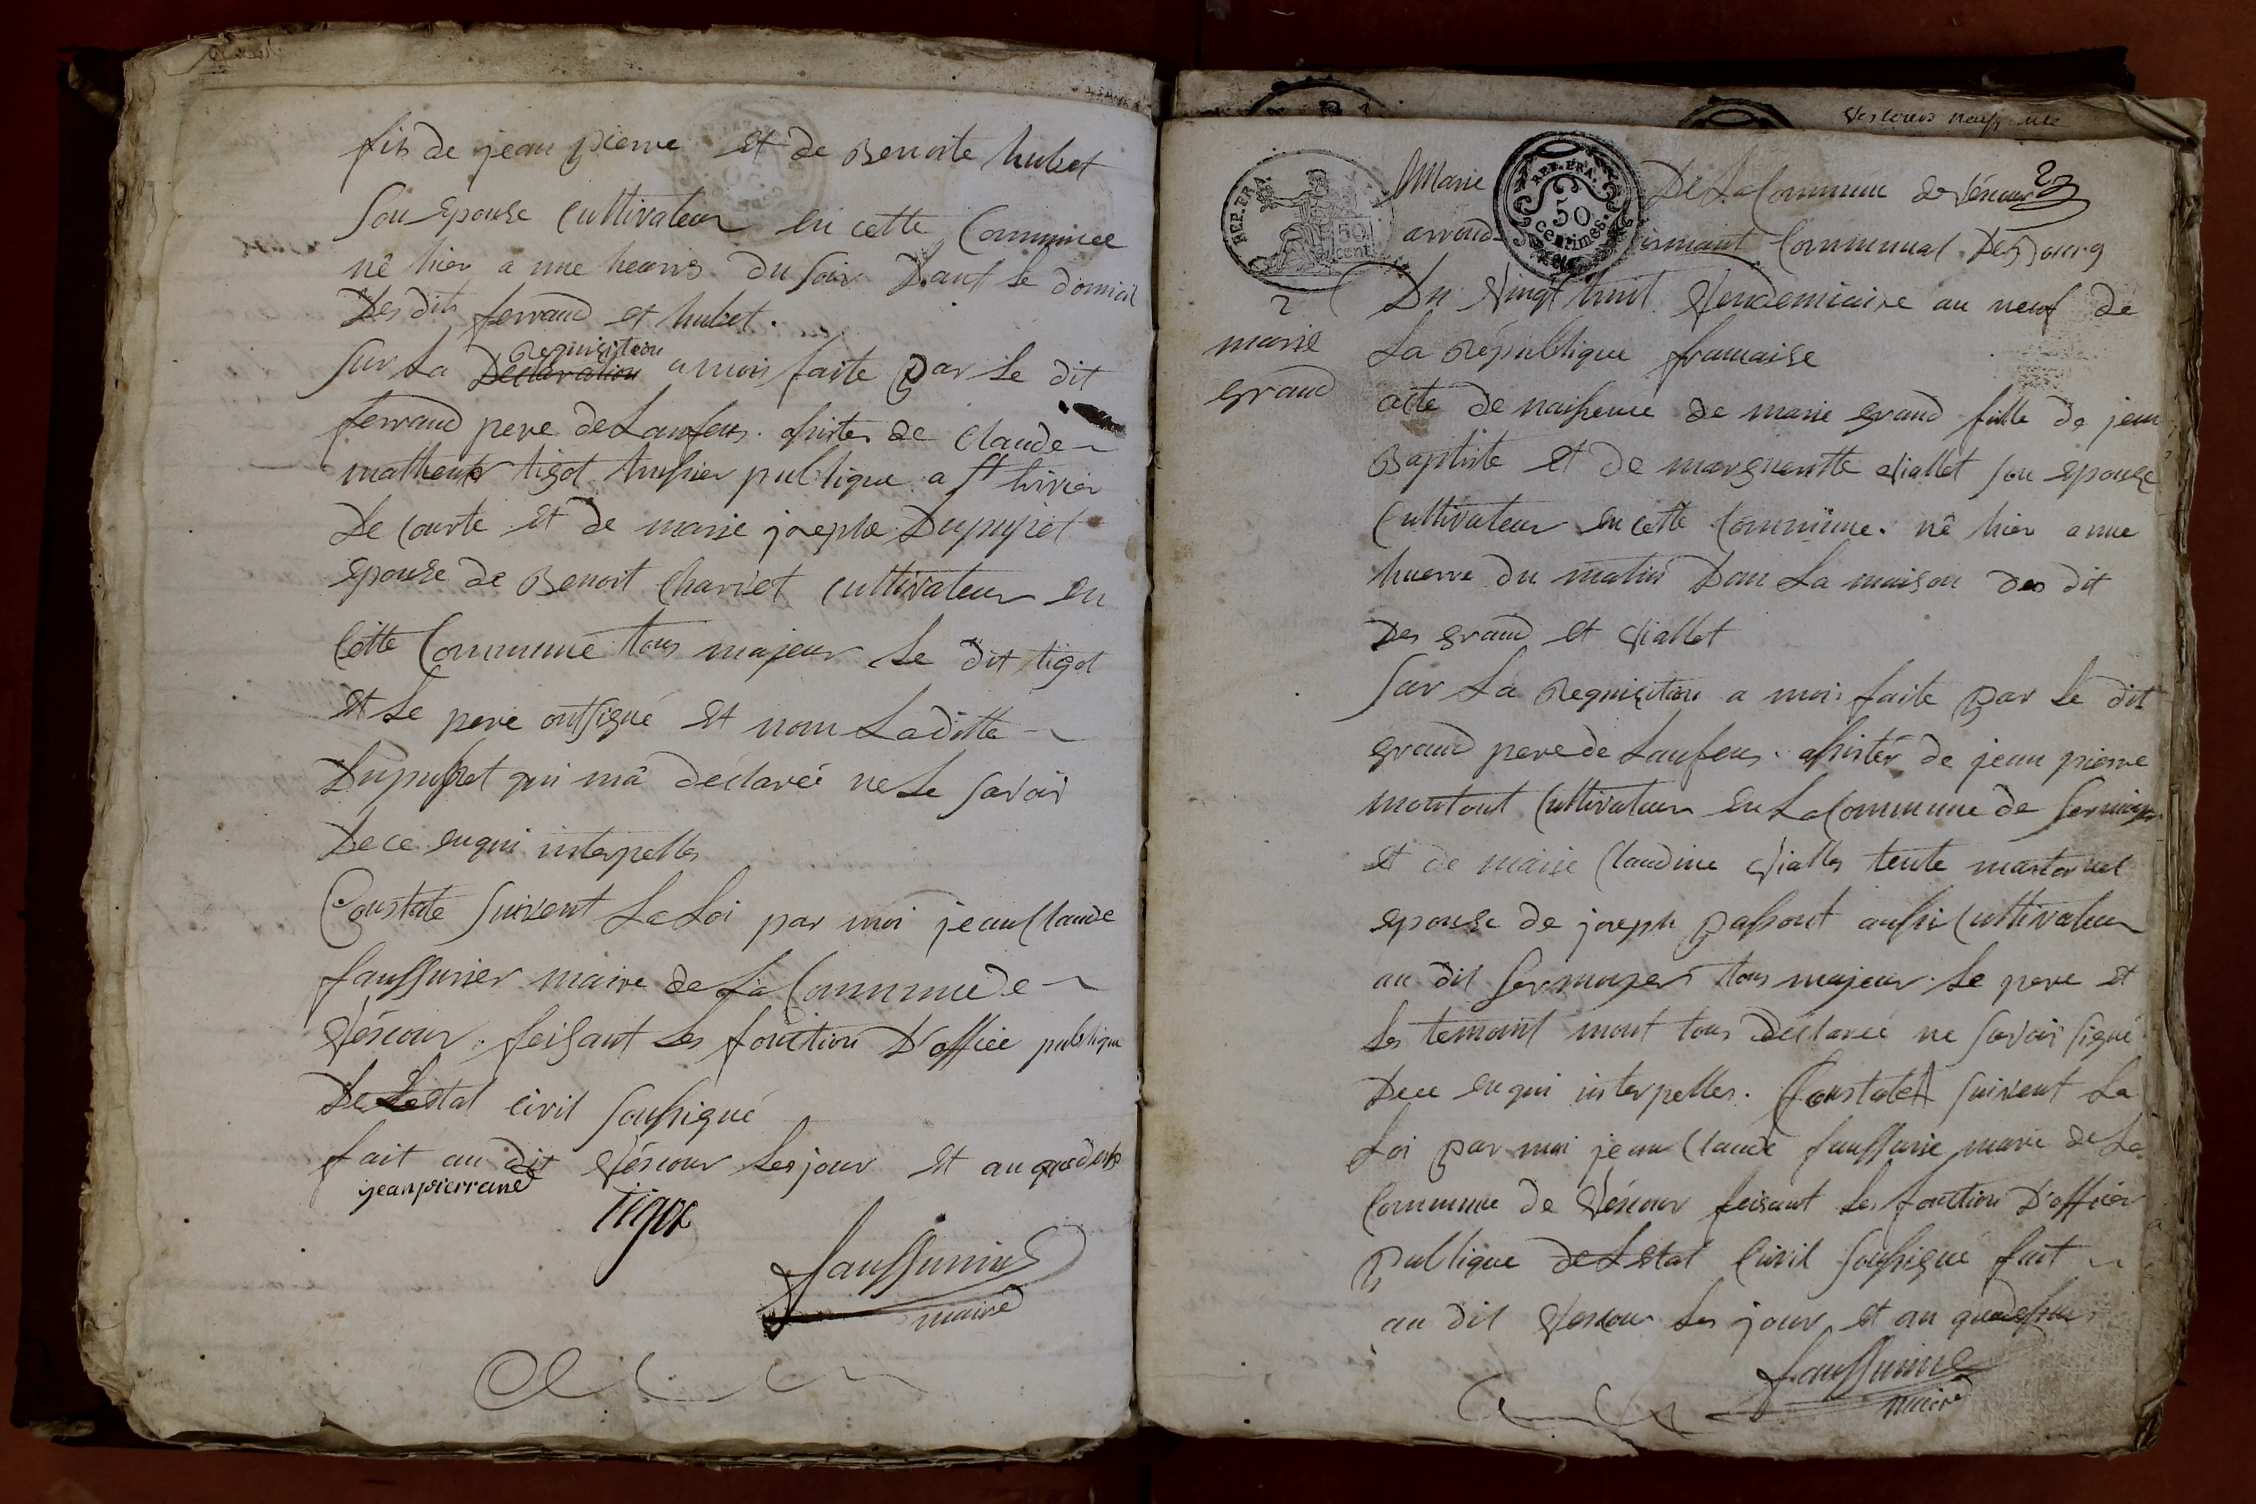 fils de jean pierre et de Benoite hubet
son epouse Cultivateur en cette Commune
né hier a une heures du soir Dant le domicil
Des dits ferrand et hubet.
Sur La Declaration Requisition a moi faite par le dit
ferrand pere de Lanfens. assister de Claude
mathieu tigot hussier publique a St trivier
De Courte et de marie josephe Dupupet
epouse de Benoit Charvet Cultivateur en
Cette Commune tous majeur le dit tigot
et le pere ont signé et nom Laditte
Dupupet qui mâ déclareé ne le savoir
De ce enqui interpelles
Constate suivent La Loi par moi jean Claude
faussurier maire de La Commune de
Vescour. feisant les fonction D'officie publique
De Lestat Civil soussigué
fait au dit Vescour les jour et an quedessus
jean pierre
Tigot
faussurier
maire
Vescours
Marie De La Commune de Vescour 2
arrond issmant Communal De Bourg
REP. FRA. 50 cent
REP. FRA. 50 centimes.
2
marie
grand
Du Vingt huit Vendemiaire an neuf de
La Republique framaise
acte de naissence de marie grand fille de jean
Baptiste et de marguerette Viallet son epouse
Cultivateur en cette Commune. né hier a une
huerre du matin Dan La maison des dit
Des grand et Viallet
Sur La Requisition a moi faite par le dit
grand pere de Lanfens. assister de jean pierre
montont Cultivateur en La Commune de Sermoyer
et de marie Claudine Viallet tente marternel
epouse de joseph passout aussi Cultivateur
au dit Sermoyer tous majeur. le pere et
les temoint mont tous Déclareé ne savoir signé
De ce enqui interpelles. Constate suivent La
Loi par moi jean Claude faussurie marie de La
Commune de Vescour feisant les fonction D'officier
publique de Lestat Civil soussigué fait
au dit Vescour les jour et an quedessus
faussurier
maire